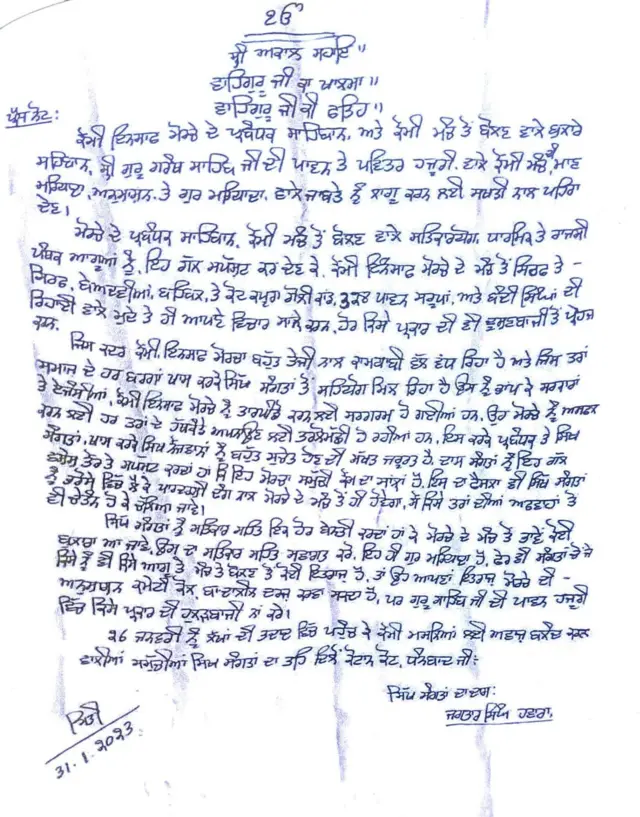 ੴ
ਸ੍ਰੀ ਅਕਾਲ ਸਹਾਇ॥
ਵਾਹਿਗੁਰੂ ਜੀ ਕਾ ਖਾਲਸਾ॥
ਵਾਹਿਗੁਰੂ ਜੀ ਕੀ ਫਤਿਹ॥
ਪ੍ਰੈਸ ਨੋਟ:
ਕੌਮੀ ਇਨਸਾਫ ਮੋਰਚੇ ਦੇ ਪ੍ਰਬੰਧਕ ਸਾਹਿਬਾਨ, ਅਤੇ ਕੌਮੀ ਮੰਚ ਤੋਂ ਬੋਲਣ ਵਾਲੇ ਬੁਲਾਰੇ
ਸਾਹਿਬਾਨ, ਸ੍ਰੀ ਗੁਰੂ ਗਰੰਥ ਸਾਹਿਬ ਜੀ ਦੀ ਪਾਵਨ ਤੇ ਪਵਿਤਰ ਹਜੂਰੀ, ਵਾਲੇ ਕੌਮੀ ਮੰਚ ਮਾਣ
ਮਰਿਯਾਦਾ, ਅਨੁਸ਼ਾਸ਼ਨ, ਤੇ ਗੁਰ ਮਰਿਯਾਦਾ, ਵਾਲੇ ਜਾਬਤੇ ਨੂੰ ਲਾਗੂ ਕਰਨ ਲਈ ਸਖਤੀ ਨਾਲ ਪਹਿਰਾ
ਦੇਣ।
ਮੋਰਚੇ ਦੇ ਪ੍ਰਬੰਧਕ ਸਾਹਿਬਾਨ, ਕੌਮੀ ਮੰਚ ਤੋਂ ਬੋਲਣ ਵਾਲੇ ਸਤਿਕਾਰਯੋਗ ਧਾਰਮਿਕ ਤੇ ਰਾਜਸੀ
ਪੰਥਕ ਆਗੂਆਂ ਨੂੰ, ਇਹ ਗੱਲ ਸਪੱਸ਼ਟ ਕਰ ਦੇਣ ਕੇ, ਕੌਮੀ ਇਨਸਾਫ ਮੋਰਚੇ ਦੇ ਮੰਚ ਤੋਂ ਸਿਰਫ ਤੇ -
ਸਿਰਫ, ਬੇਅਦਬੀਆਂ, ਬਹਿਬਲ, ਤੇ ਕੋਟ ਕਪੂਰਾ ਗੋਲੀ ਕਾਂਡ, 328 ਪਾਵਨ ਸਰੂਪਾਂ, ਅਤੇ ਬੰਦੀ ਸਿੰਘਾਂ ਦੀ
ਰਿਹਾਈ ਵਾਲੇ ਮੁਦੇ ਤੇ ਹੀ ਆਪਣੇ ਵਿਚਾਰ ਸਾਂਝੇ ਕਰਨ, ਹੋਰ ਕਿਸੇ ਪ੍ਰਕਾਰ ਦੀ ਵੀ ਦੂਸ਼ਣਬਾਜੀ ਤੋਂ ਪ੍ਰਹੇਜ
ਕਰਨ.
ਜਿਸ ਕਦਰ ਕੌਮੀ ਇਨਸਾਫ ਮੋਰਚਾ ਬਹੁਤ ਤੇਜੀ ਨਾਲ ਕਾਮਯਾਬੀ ਵੱਲ ਵੱਧ ਰਿਹਾ ਹੈ ਅਤੇ ਜਿਸ ਤਰਾਂ
ਸਮਾਜ ਦੇ ਹਰ ਵਰਗਾਂ ਖਾਸ ਕਰਕੇ ਸਿੱਖ ਸੰਗਤਾਂ ਤੋਂ ਸਹਿਯੋਗ ਮਿਲ ਰਿਹਾ ਹੈ ਉਸ ਨੂੰ ਭਾਂਪ ਕੇ ਸਰਕਾਰਾਂ
ਤੇ ਏਜੰਸੀਆਂ, ਕੌਮੀ ਇਨਸਾਫ ਮੋਰਚੇ ਨੂੰ ਤਾਰਪੀਡੋ ਕਰਨ ਲਈ ਸਰਗਰਮ ਹੋ ਗਈਆਂ ਹਨ, ਉਹ ਮੋਰਚੇ ਨੂੰ ਅਸਫਲ
ਕਰਨ ਲਈ ਹਰ ਤਰਾਂ ਦੇ ਹੱਥਕੰਡੇ ਅਪਣਾਉਣ ਲਈ ਤਰਲੋਮੱਛੀ ਹੋ ਰਹੀਆਂ ਹਨ, ਇਸ ਕਰਕੇ ਪ੍ਰਬੰਧਕ ਤੇ ਸਿੱਖ
ਸੰਗਤਾਂ, ਖਾਸ ਕਰਕੇ ਸਿੱਖ ਨੌਜਵਾਨਾਂ ਨੂੰ ਬਹੁਤ ਸੁਚੇਤ ਹੋਣ ਦੀ ਸਖਤ ਜਰੂਰਤ ਹੈ, ਦਾਸ ਸੰਗਤਾਂ ਨੂੰ ਇਹ ਗੱਲ
ਤੌਰ ਤੇ ਸਪਸ਼ਟ ਕਰਦਾ ਹਾਂ ਕਿ ਇਹ ਮੋਰਚਾ ਸਮੁੱਚੀ ਕੌਮ ਦਾ ਸਾਂਝਾ ਹੈ, ਇਸ ਦਾ ਫੈਸਲਾ ਵੀ ਸਿੱਖ ਸੰਗਤਾਂ
ਨੂੰ ਭਰੋਸੇ ਵਿੱਚ ਲੈ ਕੇ ਪਾਰਦਰਸ਼ੀ ਢੰਗ ਨਾਲ ਮੋਰਚੇ ਦੇ ਮੰਚ ਤੋਂ ਹੀ ਹੋਵੇਗਾ, ਸੋ ਕਿਸੇ ਤਰਾਂ ਦੀਆਂ ਅਫਵਾਹਾਂ ਤੋਂ
ਵੀ ਚੇਤੰਨ ਹੋ ਕੇ ਚੱਲਿਆ ਜਾਵੇ।
ਸਿੱਖ ਸੰਗਤਾਂ ਨੂੰ ਸਤਿਕਾਰ ਸਹਿਤ ਇਕ ਹੋਰ ਬੇਨਤੀ ਕਰਦਾ ਹਾਂ ਕੇ ਮੋਰਚੇ ਦੇ ਮੰਚ ਤੇ ਭਾਵੇਂ ਕੋਈ
ਬੁਲਾਰਾ ਆ ਜਾਵੇ, ਉਸ ਦਾ ਸਤਿਕਾਰ ਸਹਿਤ ਸਵਾਗਤ ਕਰੋ, ਇਹ ਹੀ ਗੁਰ ਮਰਿਯਾਦਾ ਹੈ, ਫੇਰ ਵੀ ਸੰਗਤਾਂ ਚੋਂ ਜੇ
ਕਿਸੇ ਨੂੰ ਵੀ ਕਿਸੇ ਆਗੂ ਤੇ ਮੰਚ ਤੋਂ ਬੋਲਣ ਤੇ ਕੋਈ ਇਤਰਾਜ ਹੈ, ਤਾਂ ਉਹ ਆਪਣਾਂ ਇਤਰਾਜ ਮੋਰਚੇ ਦੀ -
ਅਨੁਸ਼ਾਸ਼ਨ ਕਮੇਟੀ ਕੋਲ, ਬਾ ਦਲੀਲ ਦਰਜ ਕਰਵਾ ਸਕਦਾ ਹੈ, ਪਰ ਗੁਰੂ ਸਾਹਿਬ ਜੀ ਦੀ ਪਾਵਨ ਹਜੂਰੀ
ਵਿੱਚ ਕਿਸੇ ਪ੍ਰਕਾਰ ਦੀ ਹੁਲੜਬਾਜੀ ਨਾਂ ਕਰੇ।
26 ਜਨਵਰੀ ਨੂੰ ਲੱਖਾਂ ਦੀ ਤਦਾਦ ਵਿੱਚ ਪਹੁੰਚ ਕੇ ਕੌਮੀ ਮਸਲਿਆਂ ਲਈ ਅਵਾਜ਼ ਬੁਲੰਦ ਕਰਨ
ਵਾਲੀਆਂ ਸਮੁੱਚੀਆਂ ਸਿੱਖ ਸੰਗਤਾਂ ਦਾ ਤਹਿ ਦਿਲੋਂ ਕੋਟਾਨ ਕੋਟ, ਧੰਨਵਾਦ ਜੀ:
ਸਿੱਖ ਸੰਗਤਾਂ ਦਾ ਦਾਸ:
ਜਗਤਾਰ ਸਿੰਘ ਹਵਾਰਾ.
ਮਿਤੀ
31.1.2023